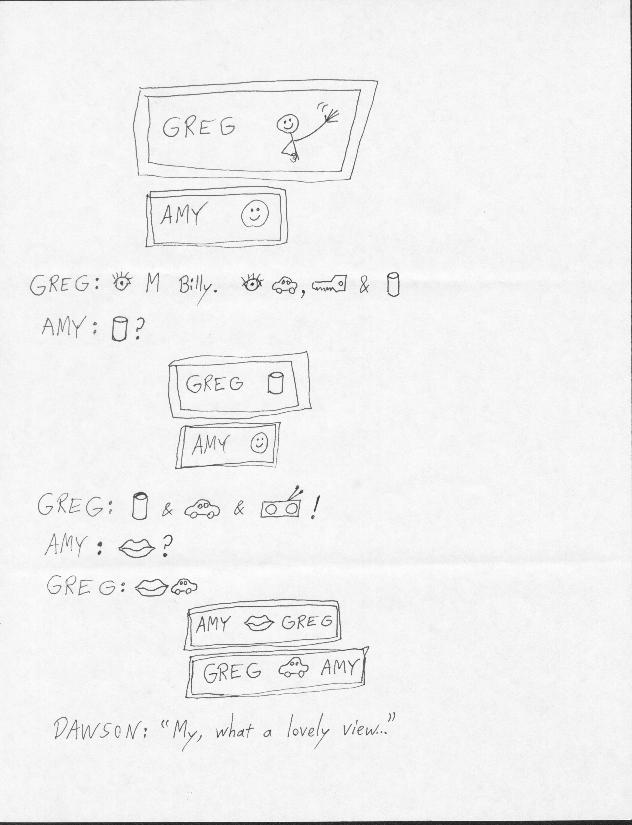 GREG
AMY
GREG: M Billy. , &
AMY: ?
GREG
AMY
GREG: & & !
AMY: ?
GREG:
AMY GREG
GREG AMY
DAWSON: "My, what a lovely view..."